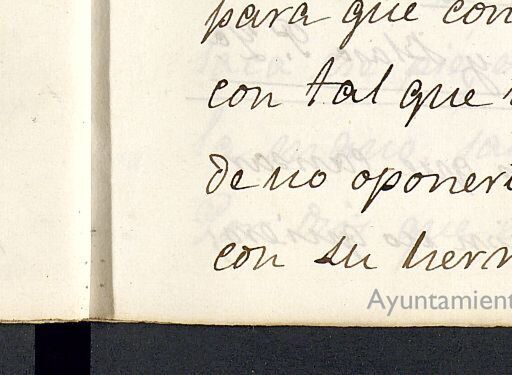 para que con
con tal que
de no oponer
con su her
Ayuntamient